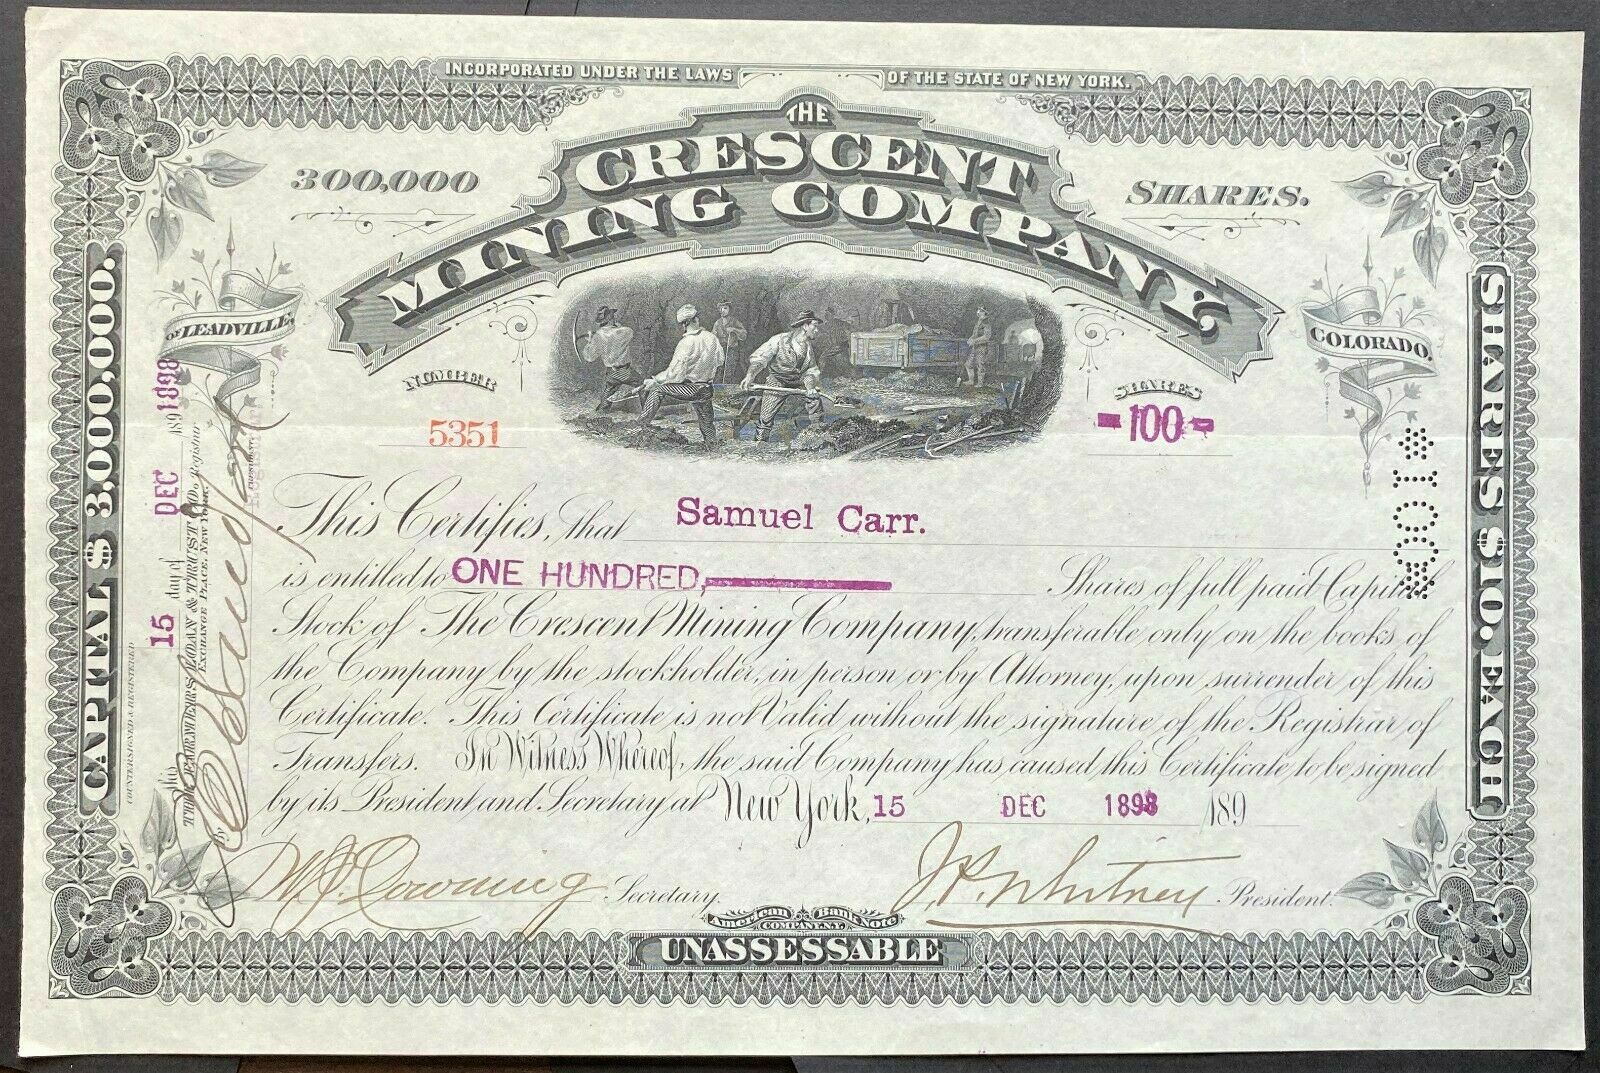 INCORPORATED UNDER THE LAWS OF THE STATE OF NEW YORK.
THE
CRESCENT
MINING COMPANY
300,000 SHARES.
OF LEADVILLE, COLORADO.
NUMBER SHARES
5351 -100-
This Certifies, that Samuel Carr.
is entitled to ONE HUNDRED, Shares of full paid Capital
Stock of The Crescent Mining Company, transferable only on the books of
the Company by the stockholder, in person or by Attorney, upon surrender of this
Certificate. This Certificate is not Valid without the signature of the Registrar of
Transfers. In Witness Whereof, the said Company has caused this Certificate to be signed
by its President and Secretary at New York, 15 DEC 1898 189
W.J. Downing Secretary. J.P. Whitney President.
American Bank Note
COMPANY N.Y.
UNASSESSABLE
CAPITAL $ 3,000,000.
COUNTERSIGNED & REGISTERED
This 15 day of DEC 1898 189
THE FARMERS LOAN & TRUST CO. Registrar
EXCHANGE PLACE, NEW YORK.
By
SHARES $10. EACH
100